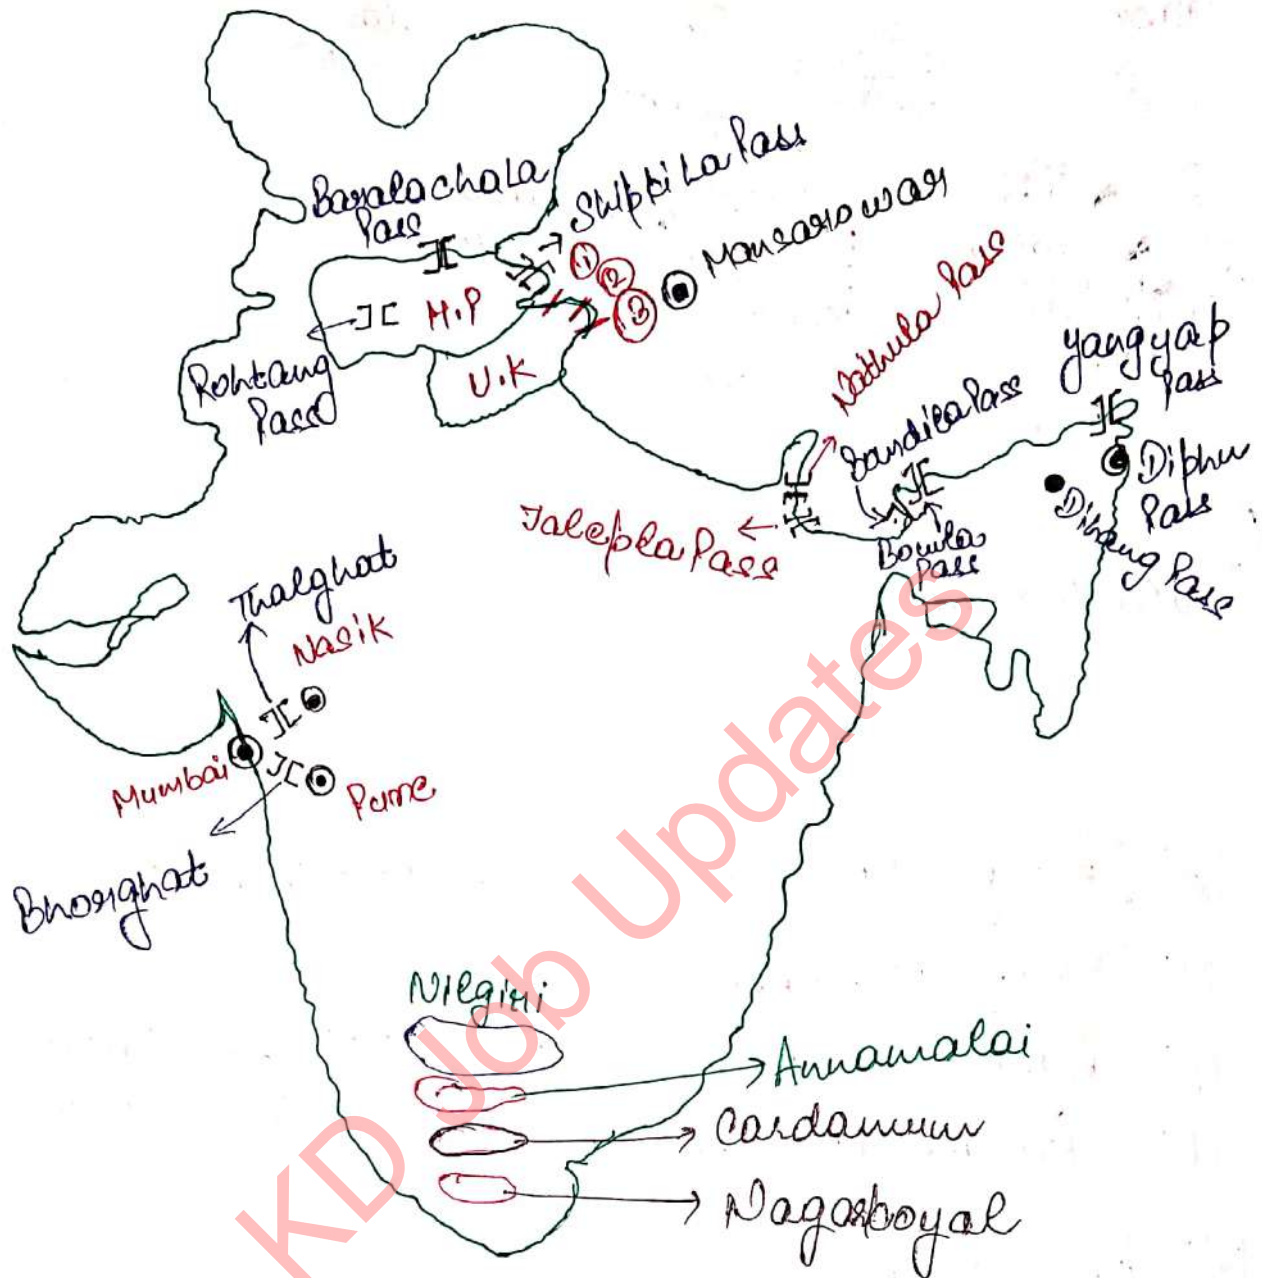 Baralachala
Pass
Shipki La Pass
1
2
3
Mansarowar
H.P
Rohtang
Pass
U.K
Nathula Pass
Yangyap
Pass
Bomdila Pass
Diphu
Pass
Dihang Pass
Jaleplа Pass
Bomla
Pass
Thalghat
Nasik
Mumbai
Pune
Bhorghat
Nilgiri
Annamalai
Cardamum
Nagarkoyal
KD Job Updates